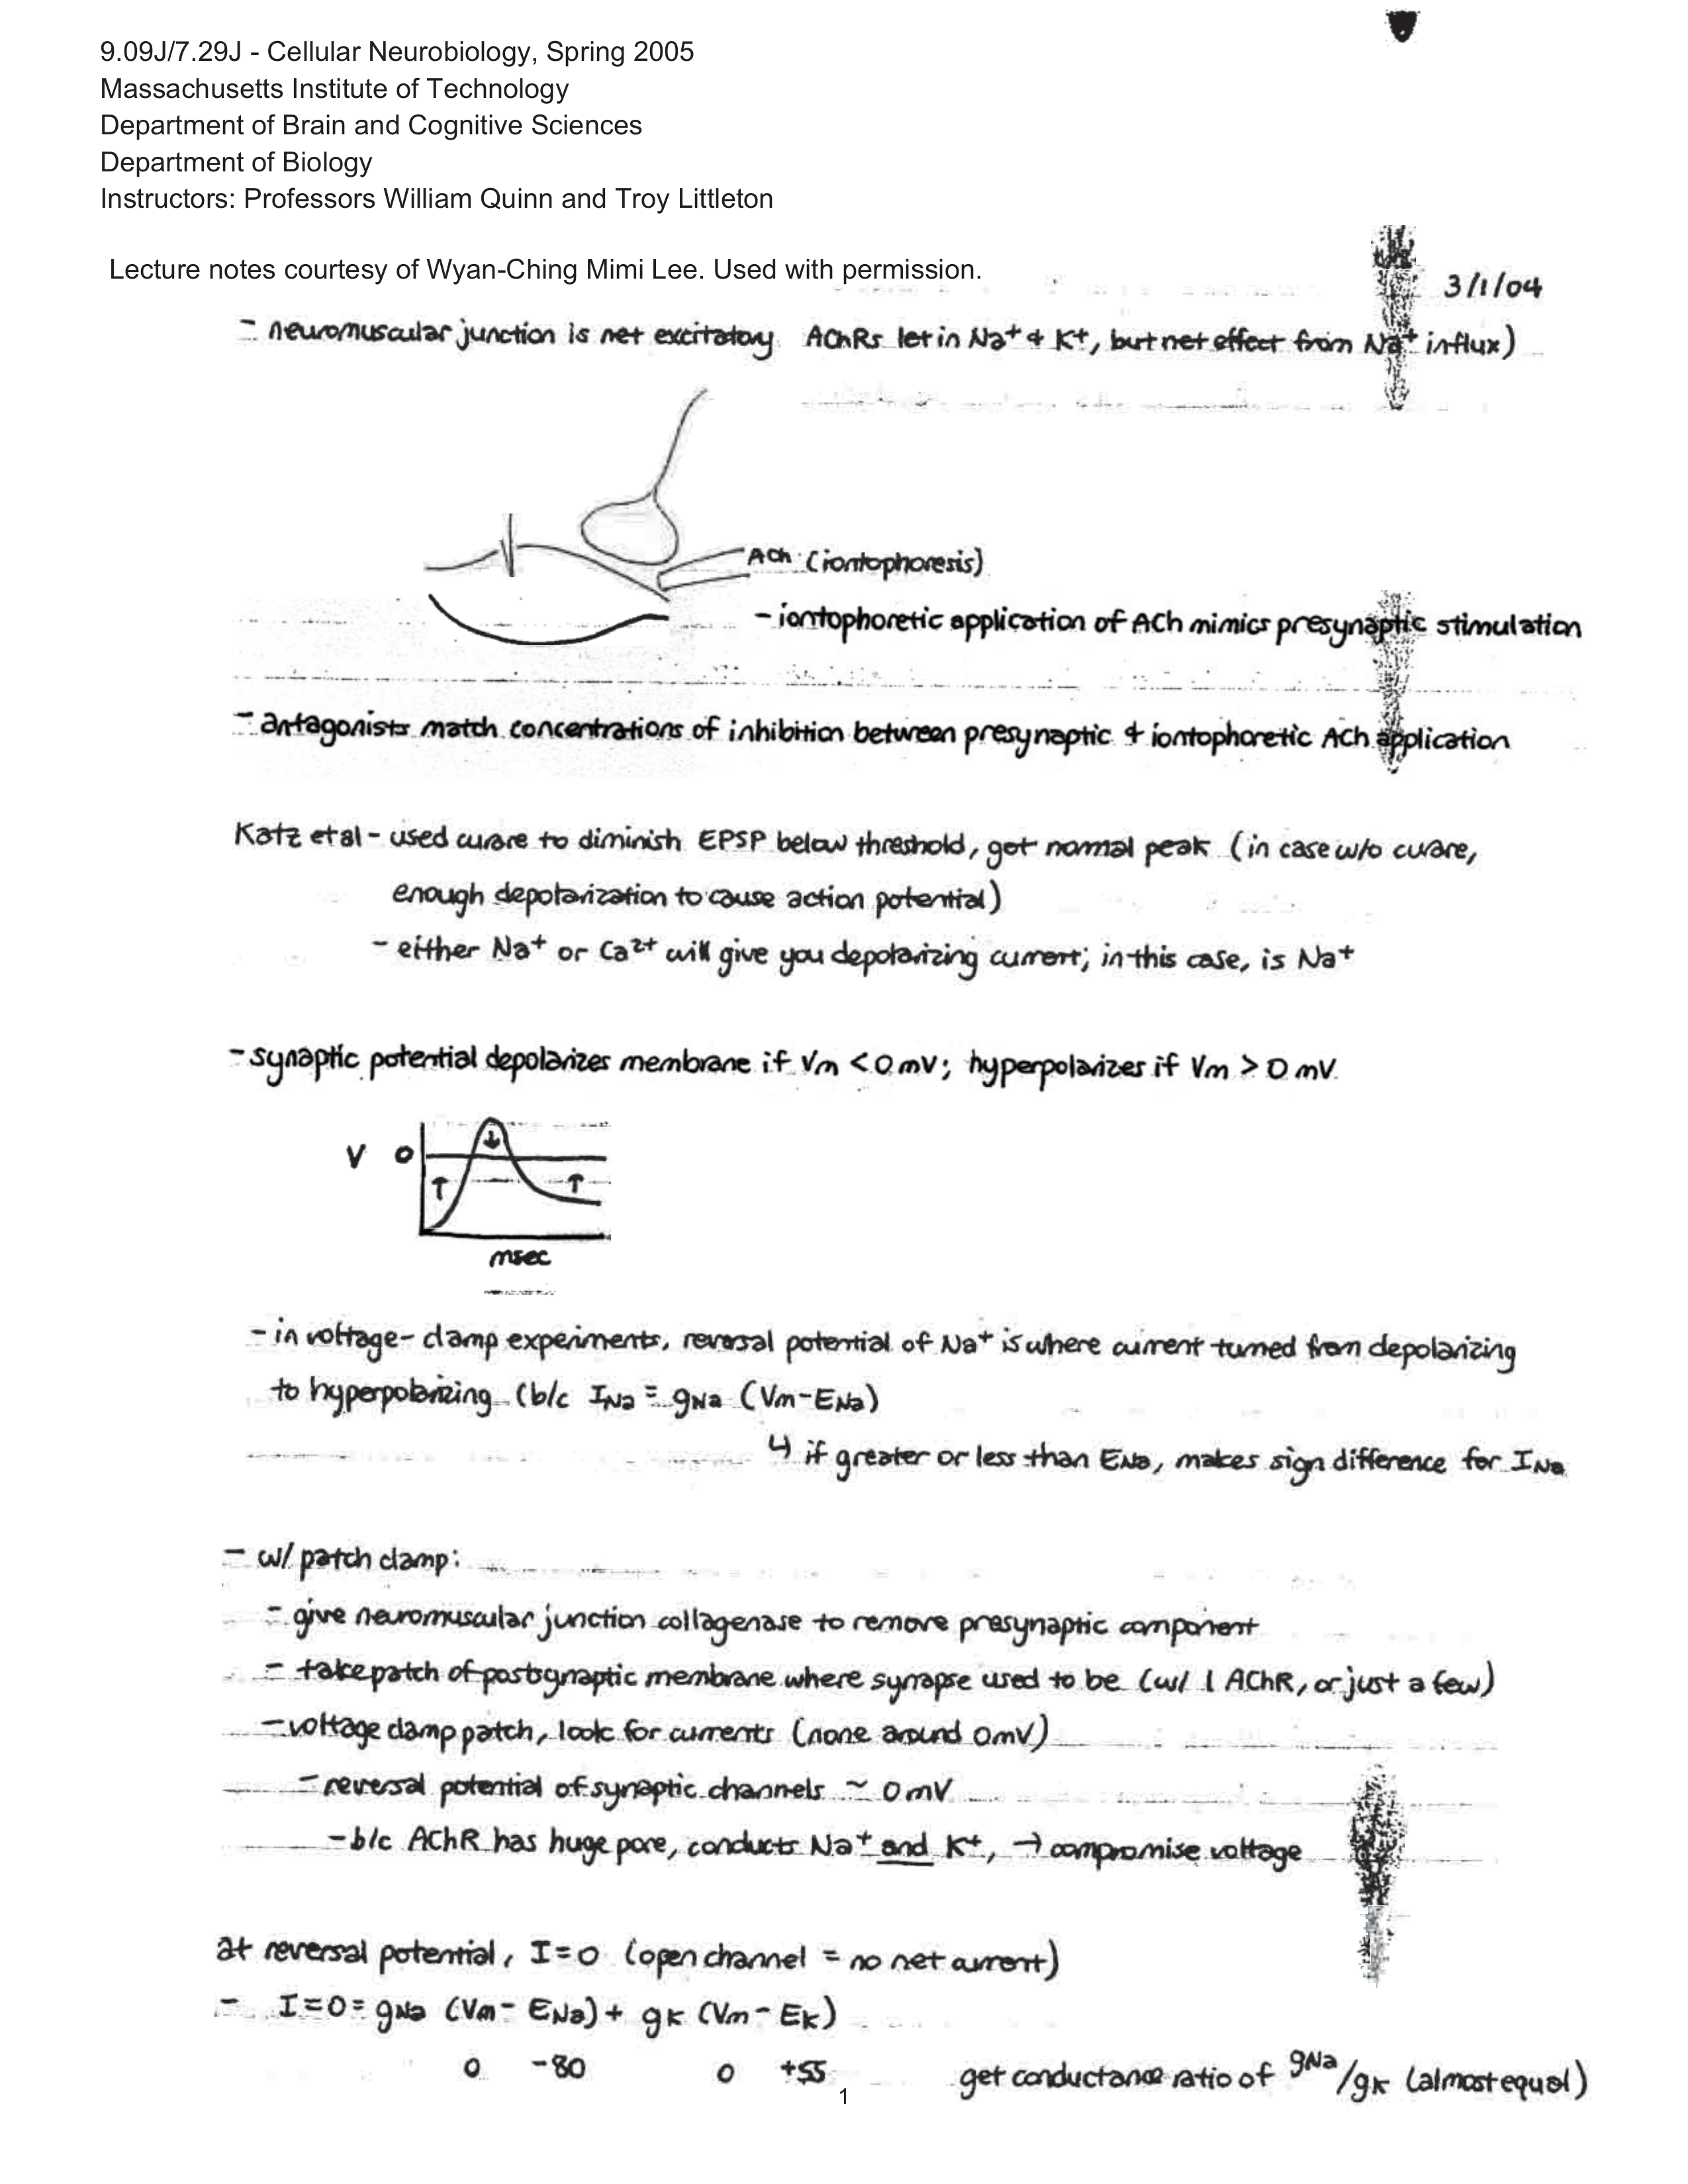 9.09J/7.29J - Cellular Neurobiology, Spring 2005
Massachusetts Institute of Technology
Department of Brain and Cognitive Sciences
Department of Biology
Instructors: Professors William Quinn and Troy Littleton
Lecture notes courtesy of Wyan-Ching Mimi Lee. Used with permission.
3/1/04
- neuromuscular junction is net excitatory AChRs let in Na⁺ & K⁺, but net effect from Na⁺ influx)
ACh (iontophoresis)
- iontophoretic application of ACh mimics presynaptic stimulation
- antagonists match concentrations of inhibition between presynaptic & iontophoretic ACh application
Katz et al - used curare to diminish EPSP below threshold, got normal peak (in case w/o curare,
enough depolarization to cause action potential)
- either Na⁺ or Ca²⁺ will give you depolarizing current; in this case, is Na⁺
- synaptic potential depolarizes membrane if Vm < 0 mV; hyperpolarizes if Vm > 0 mV
V 0
↑ ↓ ↑
msec
- in voltage-clamp experiments, reversal potential of Na⁺ is where current turned from depolarizing
to hyperpolarizing (b/c INa = gNa (Vm-ENa)
↳ if greater or less than ENa, makes sign difference for INa
- w/ patch clamp:
- give neuromuscular junction collagenase to remove presynaptic component
- take patch of postsynaptic membrane where synapse used to be (w/ 1 AChR, or just a few)
- voltage clamp patch, look for currents (none around 0mV)
- reversal potential of synaptic channels ~ 0mV
- b/c AChR has huge pore, conducts Na⁺ and K⁺, → compromise voltage
at reversal potential, I=0 (open channel = no net current)
- I=0= gNa (Vm- ENa) + gK (Vm- EK)
0 -80 0 +55 get conductance ratio of gNa/gK (almost equal)
1